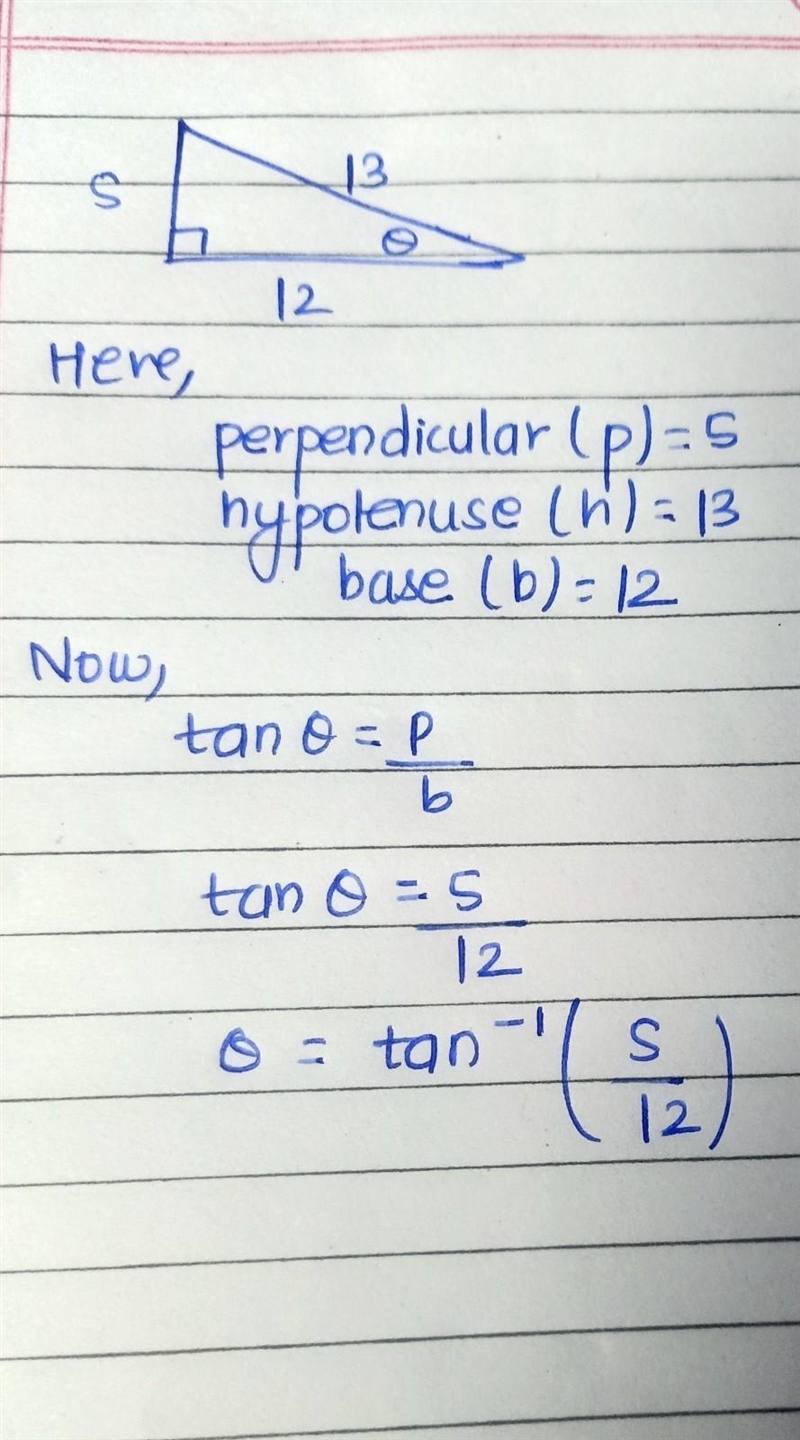 13
5
θ
12
Here,
perpendicular (p) = 5
hypotenuse (h) = 13
base (b) = 12
Now,
tan θ = p/b
tan θ = 5/12
θ = tan⁻¹(5/12)